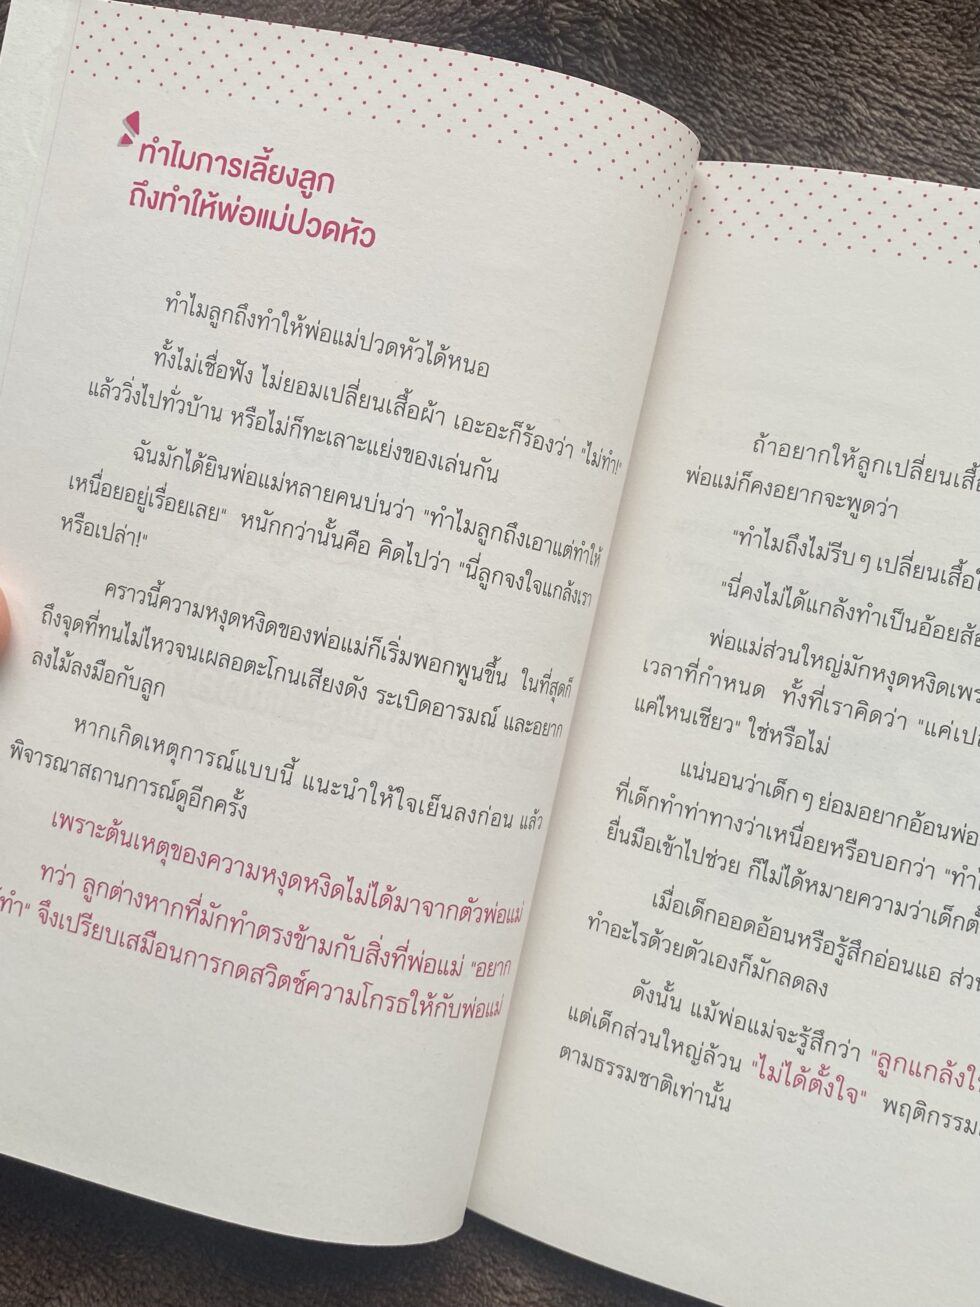 ทำไมการเลี้ยงลูก
ถึงทำให้พ่อแม่ปวดหัว
ทำไมลูกถึงทำให้พ่อแม่ปวดหัวได้หนอ
ทั้งไม่เชื่อฟัง ไม่ยอมเปลี่ยนเสื้อผ้า เอะอะก็ร้องว่า "ไม่ทำ!"
แล้ววิ่งไปทั่วบ้าน หรือไม่ก็ทะเลาะแย่งของเล่นกัน
ฉันมักได้ยินพ่อแม่หลายคนบ่นว่า "ทำไมลูกถึงเอาแต่ทำให้
เหนื่อยอยู่เรื่อยเลย" หนักกว่านั้นคือ คิดไปว่า "นี่ลูกจงใจแกล้งเรา
หรือเปล่า!"
คราวนี้ความหงุดหงิดของพ่อแม่ก็เริ่มพอกพูนขึ้น ในที่สุดก็
ถึงจุดที่ทนไม่ไหวจนเผลอตะโกนเสียงดัง ระเบิดอารมณ์ และอยาก
ลงไม้ลงมือกับลูก
หากเกิดเหตุการณ์แบบนี้ แนะนำให้ใจเย็นลงก่อน แล้ว
พิจารณาสถานการณ์ดูอีกครั้ง
เพราะต้นเหตุของความหงุดหงิดไม่ได้มาจากตัวพ่อแม่
ทว่า ลูกต่างหากที่มักทำตรงข้ามกับสิ่งที่พ่อแม่ "อยาก
ทำ" จึงเปรียบเสมือนการกดสวิตช์ความโกรธให้กับพ่อแม่
ถ้าอยากให้ลูกเปลี่ยนเสื้
พ่อแม่ก็คงอยากจะพูดว่า
"ทำไมถึงไม่รีบๆ เปลี่ยนเสื้อ
"นี่คงไม่ได้แกล้งทำเป็นอ้อยส้
พ่อแม่ส่วนใหญ่มักหงุดหงิดเพร
เวลาที่กำหนด ทั้งที่เราคิดว่า "แค่เปลี
แค่ไหนเชียว" ใช่หรือไม่
แน่นอนว่าเด็กๆ ย่อมอยากอ้อนพ่อ
ที่เด็กทำท่าทางว่าเหนื่อยหรือบอกว่า "ทำไ
ยื่นมือเข้าไปช่วย ก็ไม่ได้หมายความว่าเด็กตั้
เมื่อเด็กออดอ้อนหรือรู้สึกอ่อนแอ ส่วน
ทำอะไรด้วยตัวเองก็มักลดลง
ดังนั้น แม้พ่อแม่จะรู้สึกว่า "ลูกแกล้งใ
แต่เด็กส่วนใหญ่ล้วน "ไม่ได้ตั้งใจ" พฤติกรรม
ตามธรรมชาติเท่านั้น